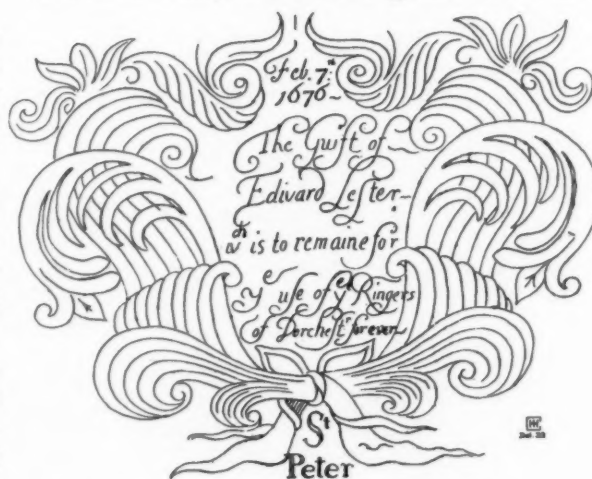 Feb. 7th
1676
The Guift of
Edward Lester
wch is to remaine for
ye use of ye Ringers
of Dorchestr for ever
St
Peter